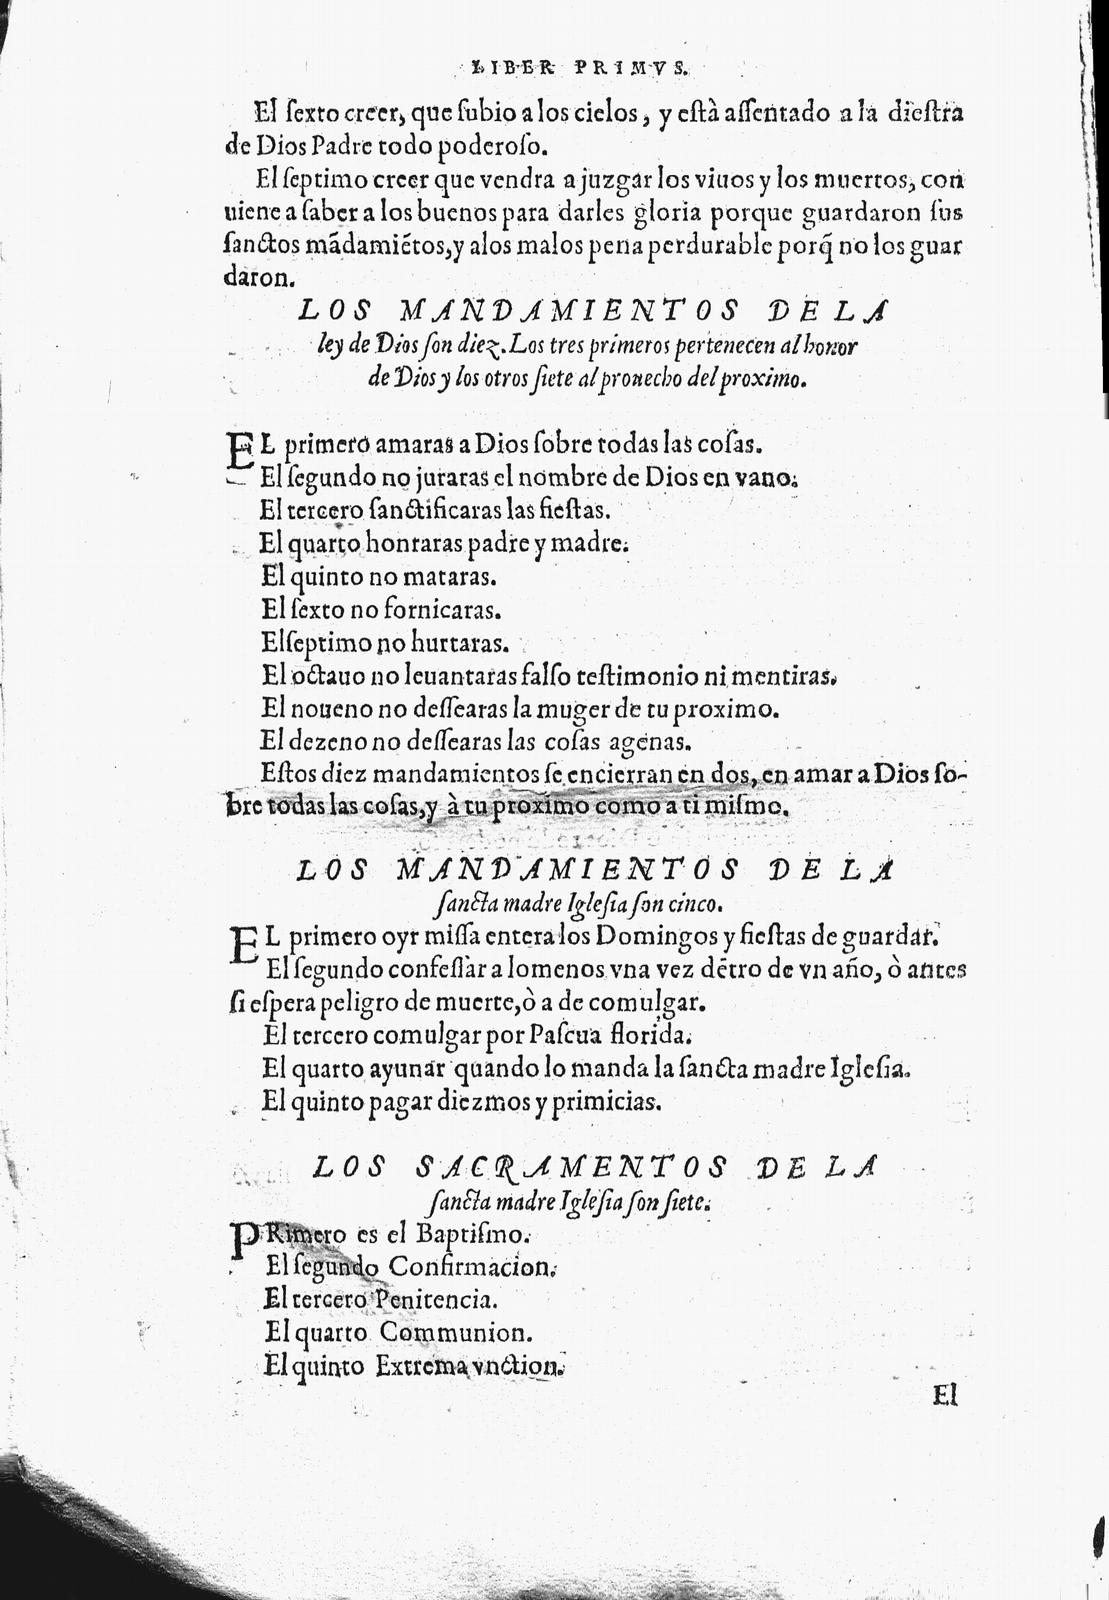 LIBER PRIMVS.
El ſexto creer, que ſubio a los cielos, y està aſſentado a la dieſtra
de Dios Padre todo poderoſo.
El ſeptimo creer que vendra a juzgar los viuos y los muertos, con
uiene a ſaber a los buenos para darles gloria porque guardaron ſus
ſanctos mãdamiẽtos, y alos malos pena perdurable porq̃ no los guar
daron.
LOS MANDAMIENTOS DE LA
ley de Dios ſon diez. Los tres primeros pertenecen al honor
de Dios y los otros ſiete al prouecho del proximo.
EL primero amaras a Dios ſobre todas las coſas.
El ſegundo no juraras el nombre de Dios en vano.
El tercero ſanctificaras las fieſtas.
El quarto honraras padre y madre.
El quinto no mataras.
El ſexto no fornicaras.
El ſeptimo no hurtaras.
El octauo no leuantaras falſo teſtimonio ni mentiras.
El noueno no deſſearas la muger de tu proximo.
El dezeno no deſſearas las coſas agenas.
Eſtos diez mandamientos ſe encierran en dos, en amar a Dios ſo-
bre todas las coſas, y à tu proximo como a ti miſmo.
LOS MANDAMIENTOS DE LA
ſancta madre Igleſia ſon cinco.
EL primero oyr miſſa entera los Domingos y fieſtas de guardar.
El ſegundo confeſſar a lomenos vna vez dẽtro de vn año, ò antes
ſi eſpera peligro de muerte, ò a de comulgar.
El tercero comulgar por Paſcua florida.
El quarto ayunar quando lo manda la ſancta madre Igleſia.
El quinto pagar diezmos y primicias.
LOS SACRAMENTOS DE LA
ſancta madre Igleſia ſon ſiete.
PRimero es el Baptiſmo.
El ſegundo Confirmacion.
El tercero Penitencia.
El quarto Communion.
El quinto Extrema vnction.
El